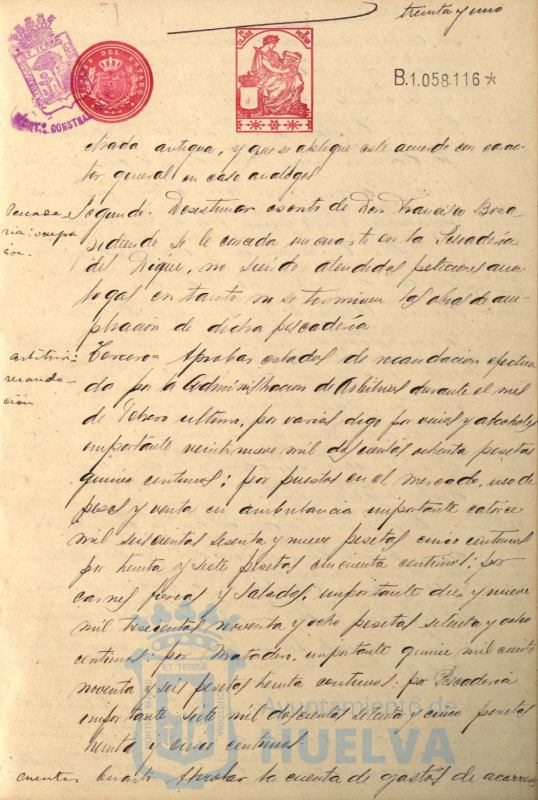 treinta y uno
B.1.058.116*
TIMBRE DEL ESTADO
trada antigua, y que se aplique este acuerdo con carac-
ter general en caso analogo
Pescade-
ria: ocupa-
cion.
Segundo. Desestimar escrito de Don Francisco
pidiendo se le conceda un cuarto en la Pescaderia
del Dique, no siendo atendidas peticiones ana-
logas en tanto no se terminen las obras de am-
pliacion de dicha pescaderia
arbitrios:
recauda-
ción
Tercero= Aprobar estados de recaudacion efectua-
da por la Administracion de Arbitrios durante el mes
de Febrero ultimo, por varios digo por vinos y alcoholes
importante veintinueve mil doscientas ochenta pesetas
quince centimos; por puestos en el mercado, uso de
pesas y venta en ambulancia importante catorce
mil seiscientas sesenta y nueve pesetas cinco centimos
por treinta y siete pesetas cincuenta centimos; por
carnes frescas y saladas, importante diez y nueve
mil trescientas noventa y ocho pesetas setenta y ocho
centimos: por Matadero, importante quince mil ciento
noventa y seis pesetas treinta centimos: por Pescaderia
importante siete mil doscientas setenta y cinco pesetas
treinta y cinco centimos.
Ayuntamiento de
HUELVA
cuentas
Cuarto Aprobar la cuenta de gastos de acarreos